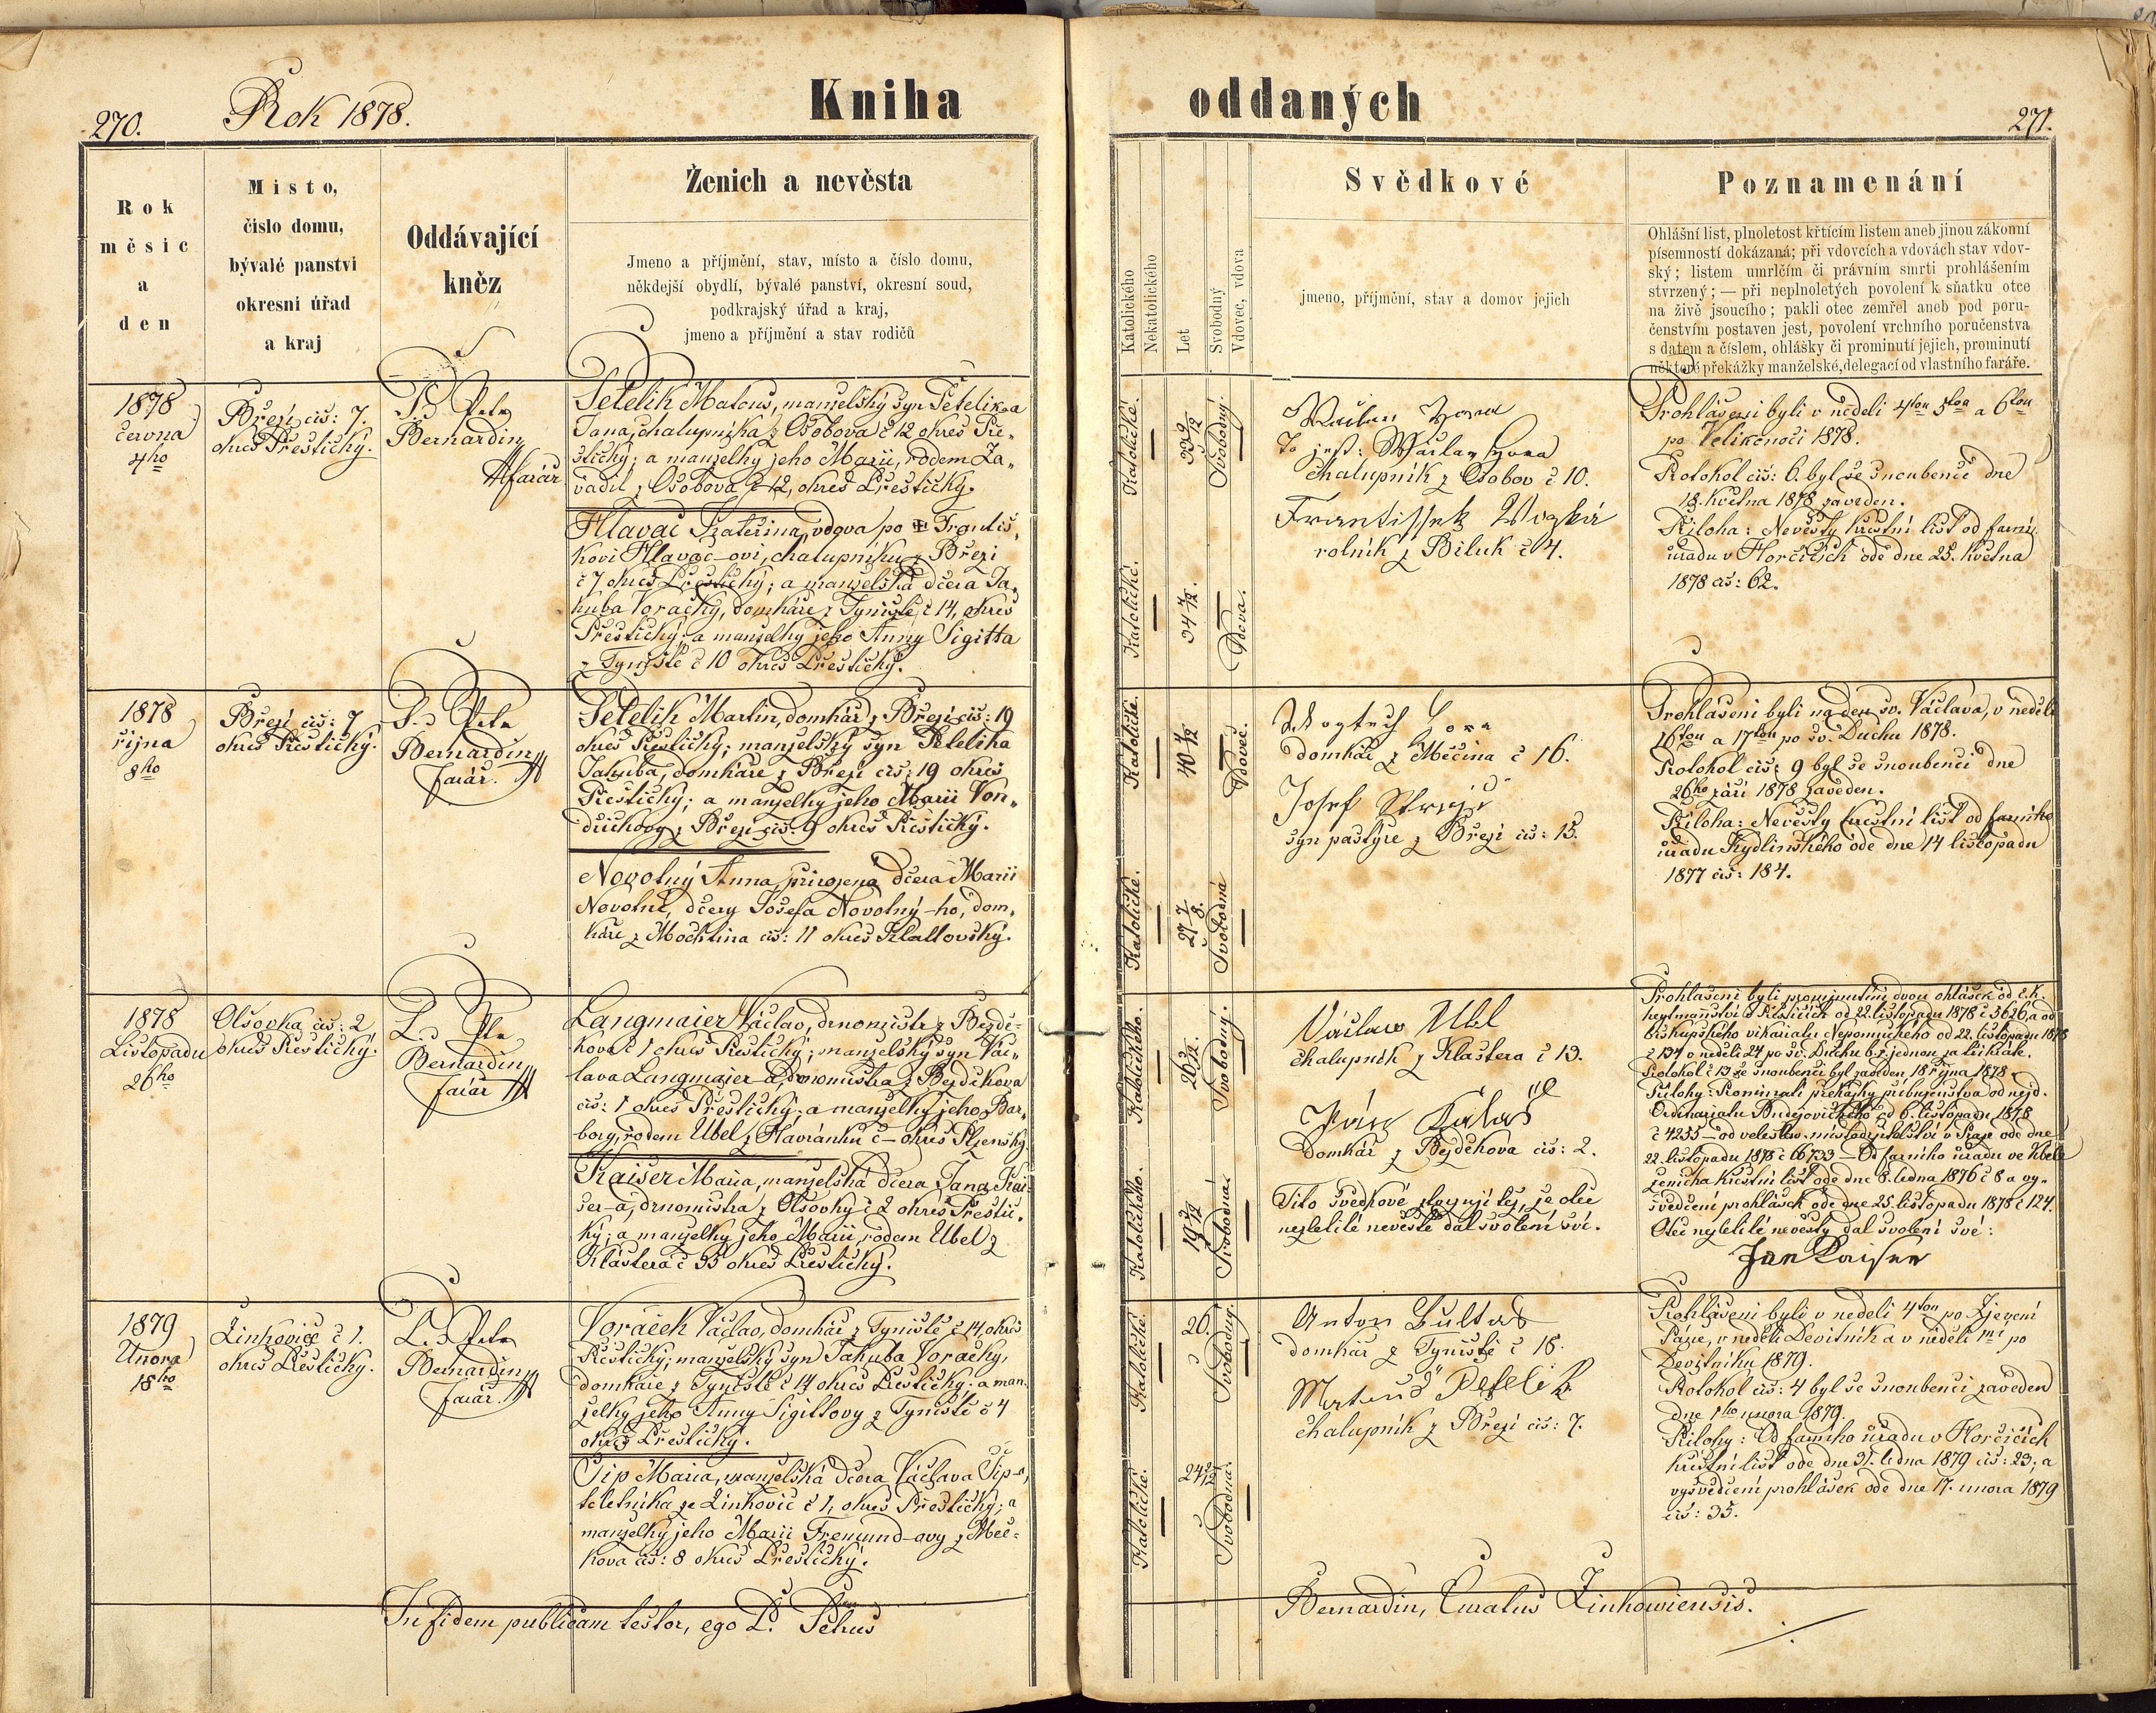 270.
Rok 1878.
Kniha
oddaných
271.
Rok
měsíc
a
den
Místo,
číslo domu,
bývalé panství
okresní úřad
a kraj
Oddávající
kněz
Ženich a nevěsta
Jmeno a příjmění, stav, místo a číslo domu,
někdejší obydlí, bývalé panství, okresní soud,
podkrajský úřad a kraj,
jmeno a příjmění a stav rodičů
Katolického
Nekatolického
Let
Svobodný
Vdovec, vdova
Svědkové
jmeno, příjmění, stav a domov jejich
Poznamenání
Ohlášní list, plnoletost křticím listem aneb jinou zákonní
písemností dokázaná; při vdovcích a vdovách stav vdov-
ský; listem umrlčím či právním smrti prohlášením
stvrzený; — při neplnoletých povolení k sňatku otce
na živě jsoucího; pakli otec zemřel aneb pod poru-
čenstvím postaven jest, povolení vrchního poručenstva
s datem a číslem, ohlášky či prominutí jejich, prominutí
některé překážky manželské, delegací od vlastního faráře.
1878
června
4ho
Březí čís: 7.
okres Přeštický.
P. Petr
Bernardin
farář
Petelík Matouš, manželský syn Petelík-a
Jana, chalupníka z Osobova č 12 okres Pře-
štický; a manželky jeho Marii, rodem Za-
vadil z Osobova č 12, okres Přeštický.
Hlavač Kateřina, vdova po Františ-
kovi Hlavač-ovi, chalupníku z Březí
č 7 okres Přeštický; a manželská dcera Ja-
kuba Voráčky, domkáře z Týniště č 14, okres
Přeštický; a manželky jeho Anny Sigitta
z Týniště č 10 okres Přeštický.
Katolické.
33 9/12
Svobodný.
Katolické.
34 7/12.
Vdova.
Wáclav Hora
To jest: Wáclav Hora
chalupník z Osobov č 10.
Frantissek
rolník z Biluk č 4.
Prohlášeni byli v neděli 4tou 5tou a 6tou
po Velikonoci 1878.
Protokol čís: 6. byl se snoubenci dne
18. května 1878 zaveden.
Příloha: Nevěsty křestní list od farní.
úřadu v Horčicích ode dne 25. května
1878 čís: 62.
1878
října
8ho
Březí čís: 7
okres Přeštický.
P. Petr
Bernardin
farář.
Petelík Martin, domkář z Březí čís: 19
okres Přeštický; manželský syn Petelíka
Jakuba, domkáře z Březí čís: 19 okres
Přeštický; a manželky jeho Marii Von-
z Březí čís. 9 okres Přeštický.
Novotný Anna, přirozená dcera Marii
Novotné, dcery Josefa Novotný-ho, dom-
káře z Mochtína čís: 11 okres Klattovský.
Katolické.
40 4/12
Vdovec.
Katolické.
Svobodná
Wogtech Hora
domkář z Měčína č 16.
Josef
syn pastýře z Březí čís: 13.
Prohlášeni byli na den sv. Václava, v neděli
16tou a 17tou po sv. Duchu 1878.
Protokol čís: 9 byl se snoubenci dne
26ho září 1878 zaveden.
Příloha: Nevěsty křestní list od farního
úřadu Kydlinského ode dne 14 listopadu
1877 čís: 184.
1878
Listopadu
26ho
Olšovka čís: 2
okres Přeštický.
P. Petr
Bernardin
farář
Langmaier Václav, drnomistr z Bezdě-
kova č 1 okres Přeštický; manželský syn Vác-
lava Langmajer-a, drnomistra z Bezděkova
čís: 1 okres Přeštický; a manželky jeho Bar-
bory, rodem Ubel z Havránku č - okres Plzenský.
Kaiser Maria, manželská dcera Jana Kai-
ser-a, drnomistra z Olšovky č 2 okres Přeštic-
ký; a manželky jeho Marii, rodem Ubel z
Kláštera č 35 okres Přeštický.
Katolického.
Svobodný.
Katolického.
Svobodná.
Václaw Ubl
chalupník z Kláštera č 13.
Domkář z Bezděkova čís: 2.
Tito svědkové stvrzují též, že otec
nezletilé nevěstě dal svolení své.
Prohlášeni byli prominutím dvou ohlášek od c.k.
hejtmanství v Přešticích od 22. listopadu 1878 č 5626, a od
biskupského vikariatu Nepomuckého od 22. listopadu 1878
č 134 v neděli 24 po sv. Duchu b.r. jednou za třikráte.
Protokol č 13 se snoubenci byl zaveden 18 října 1878.
Přílohy: Prominutí překážky příbuzenstva od nejd.
Ordinariatu Budějovického od 6. listopadu 1878
č 4255 - od veleslav. místodržitelství v Praze ode dne
22. listopadu 1878 č 66733 - Od farního úřadu ve Kbele
ženicha křestní list ode dne 8. ledna 1876 č 8 a vy-
svědčení prohlášek ode dne 25. listopadu 1878 č 124.
Otec nezletilé nevěsty dal svolení své:
Jan Kaiser
1879
Února
18ho
Žinkovice č 1.
okres Přeštický.
P. Petr
Bernardin
farář.
Voráček Václav, domkář z Týniště č 14, okres
Přeštický; manželský syn Jakuba Voráčky,
domkáře z Týniště č 14 okres Přeštický; a man-
želky jeho Anny Sigittovy z Týniště č 4
okres Přeštický.
Šíp Maria, manželská dcera Václava Šíp-a,
z Žinkovic č 1, okres Přeštický; a
manželky jeho Marii Fremund-ovy z Meč-
kova čís: 8 okres Přeštický.
Katolické.
26.
Svobodný.
Katolické.
Svobodná.
Anton Bultas
domkář z Týniště č 18.
Matouš Petelík
chalupník z Březí čís: 7.
Prohlášeni byli v neděli 4tou po Zjevení
Páně, v neděli Devítník a v neděli 1ní po
Devítníku 1879.
Protokol čís: 4 byl se snoubenci zaveden
dne 1ho února 1879.
Přílohy: Od farního úřadu v Horčicích
křestní list ode dne 31. ledna 1879 čís: 23; a
vysvědčení prohlášek ode dne 17. února 1879
čís: 35.
In fidem publicam testor, ego P. Petrus
Bernardin, Curatus Žinkowiensis.